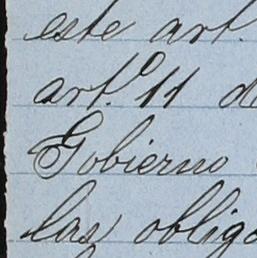 este art.
art.º 11 d
Gobierno
las oblig